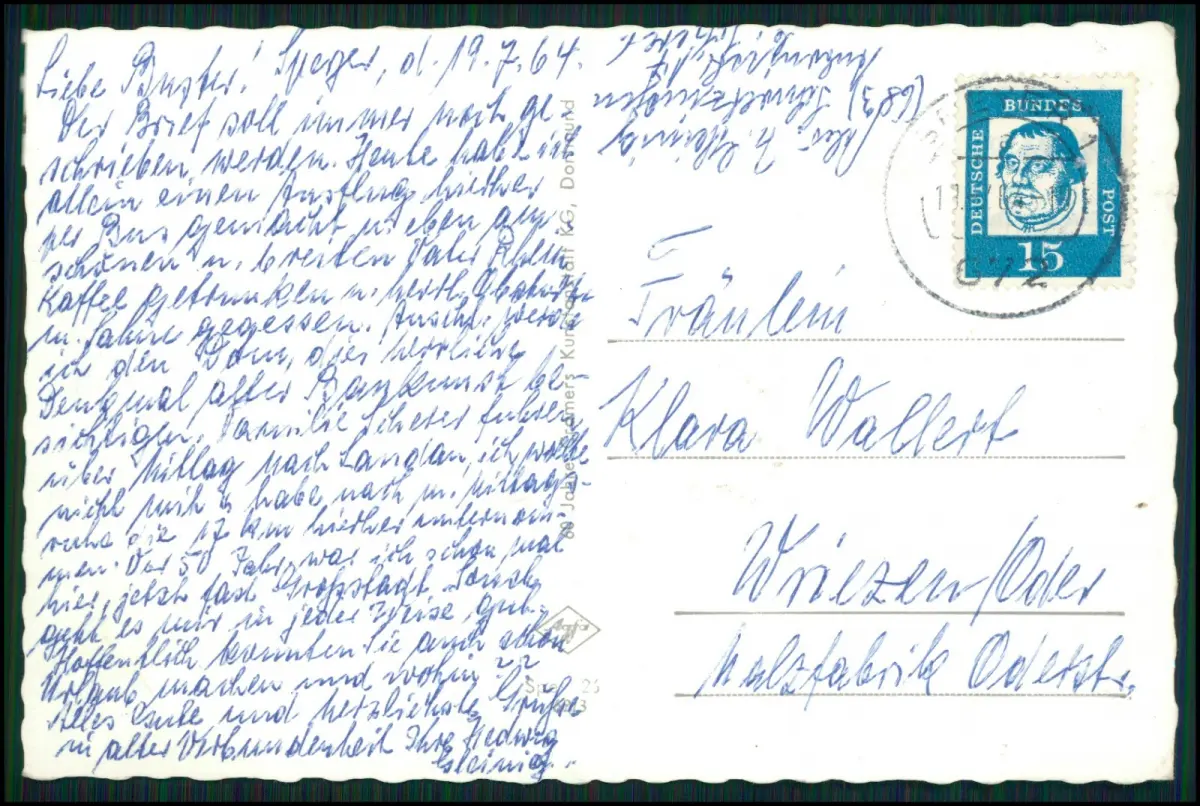 Liebe Buster! Speyer, d. 19.7.64.
Der Brief soll immer noch ge-
schrieben werden. Heute habe ich
allein einen Ausflug hierher
per Bus gemacht u. eben am
schönen u. breiten Vater Rhein
Kaffee getrunken u. herrl. Obsttorte
m. Sahne gegessen. Anschl. werde
ich den Dom, dies herrliche
Denkmal alter Baukunst be-
sichtigen. Familie Scherer fuhren
über Mittag nach Landau, ich wollte
nicht mit u. habe nach m. Mittags-
ruhe die 17 km hierher unternom-
men. Vor 50 Jahr. war ich schon mal
hier, jetzt fast Großstadt. Sonst
geht es mir in jeder Weise gut.
Hoffentlich konnten Sie auch schon
Urlaub machen und wohin??
Alles Gute und herzlichste Grüße
in alter Verbundenheit Ihre Hedwig
Gleinig.
60 Jahre Cramers Kunstanstalt KG, Dortmund
Abs. H. Gleinig
(683) Schwetzingen
b. Scherer
DEUTSCHE
BUNDES
POST
15
672
Fräulein
Klara Wallert
Wriezen/Oder
Malzfabrik Oderstr.